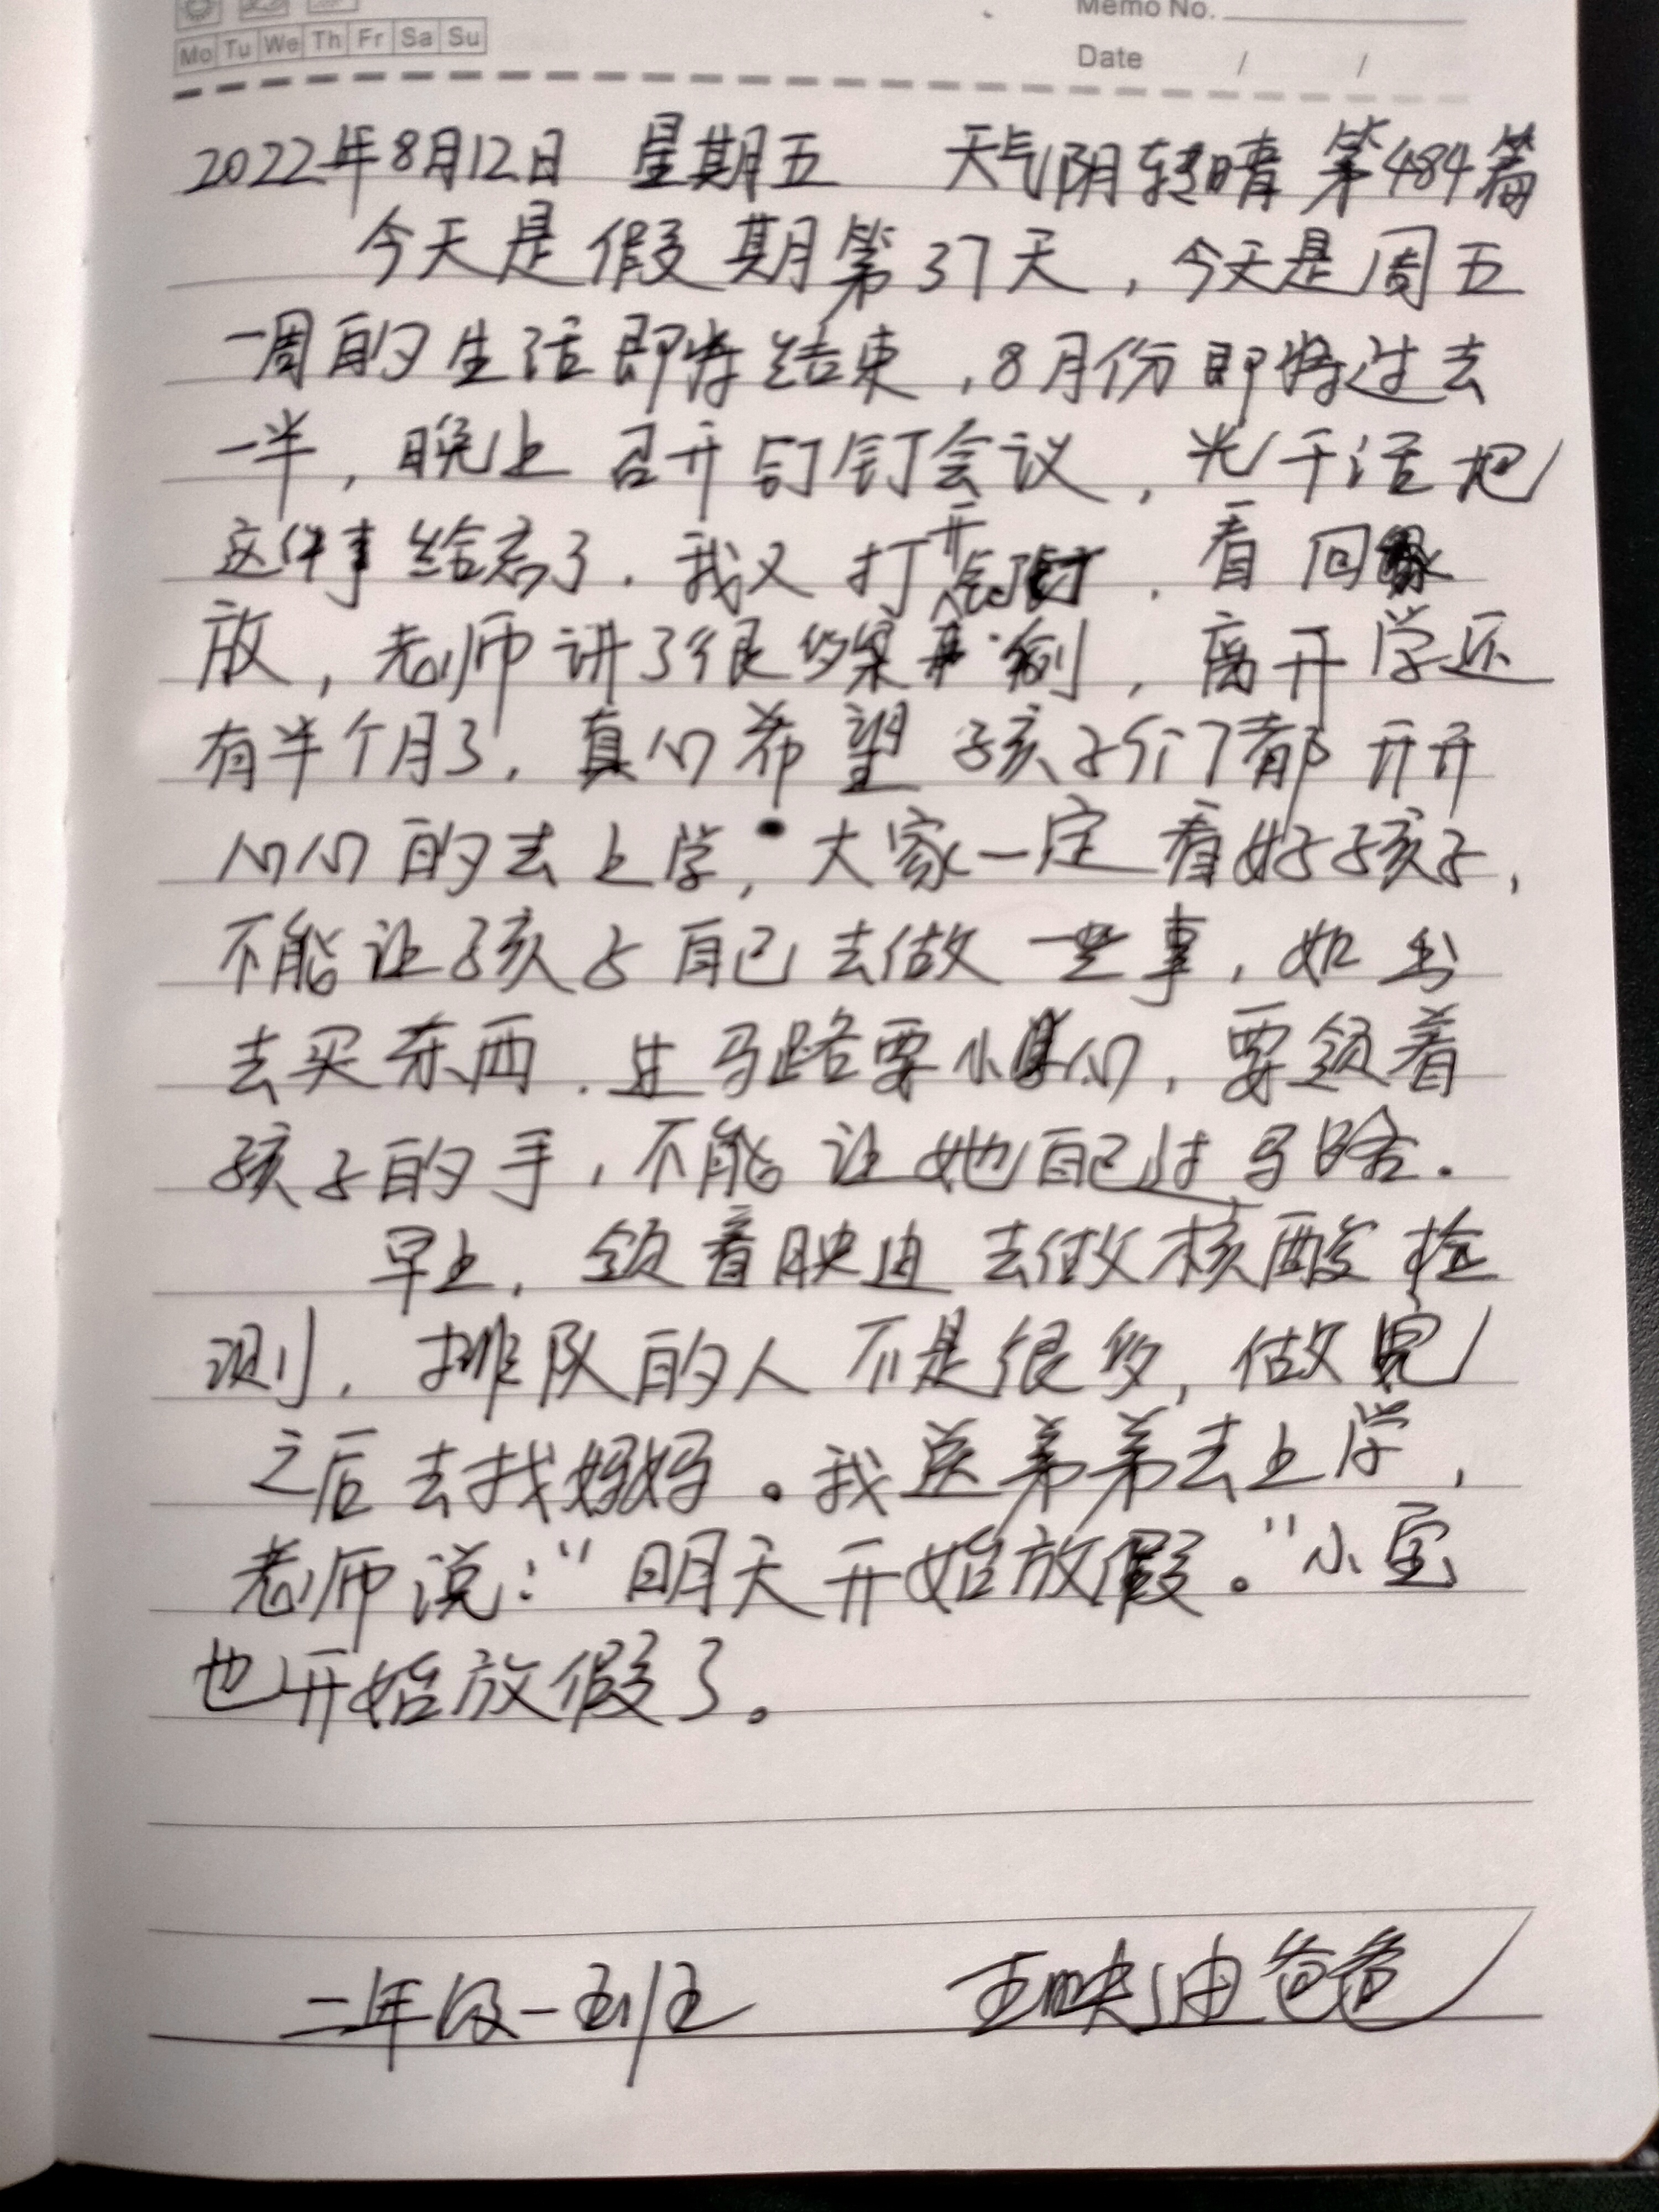 Memo No.
Mo Tu We Th Fr Sa Su
Date / /
2022年8月12日 星期五 天气阴转晴 第484篇
今天是假期第37天，今天是周五
一周的生活即将结束，8月份即将过去
一半，晚上召开钉钉会议，光干活把
这件事给忘了．我又打开钉钉，看回
放，老师讲了很多案例，离开学还
有半个月了，真心希望孩子们都开开
心心的去上学，大家一定看好孩子，
不能让孩子自己去做一些事，如出
去买东西．过马路要小心，要领着
孩子的手，不能让她自己过马路．
早上，领着映迪去做核酸检
测，排队的人不是很多，做完
之后去找妈妈。我送弟弟去上学，
老师说：“明天开始放假。”小宝
也开始放假了。
二年级一班 王映迪爸爸